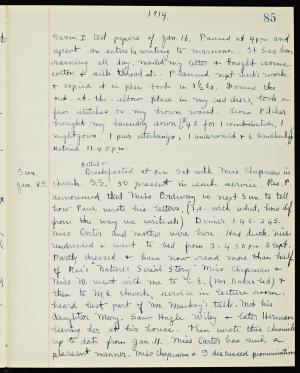 1914.
85
Form I test papers of Jan. 16. Paused at 4 p.m. and
spent an entire hr. writing to mamma. It has been
raining all day. Mailed my letter & bought some
cotton & silk thread etc. Planned next week's work
& copied it in plan book in 1½ hrs. Darned the
out-at-the-elbow place in my red dress, took a
few stitches in my brown waist.
brought my laundry 1 combination, 1
nightgown, 1 pair stockings, 1 underwaist & 6 handkerchiefs
Retired 11.45 p.m.
Sun. Breakfasted at 9 - Sat with Miss Chapman in
Jan. 25. church. S.S. 50 present in each service. Rev. P.
announced that Miss Ordway is next Sun. to tell
how Paul wrote his letters, (I.e. with what, how dif
from the way we write etc.) Dinner 1.45-2.45.
Miss Carter and mother were here. Had duck. Nice
undressed & went to bed from 3-4.30 p.m. Slept.
Partly dressed & have now read more than half
of Roe's Nature's Serial Story. Miss Chapman &
Miss W. went with me to C. E. (Mr. Baker led) &
then to M.E. church, service in lecture room.
heard last part of Mr. Mackey's talk. Met his
daughter Mary. Saw Hazle Wiley & later Herman
leaving her at his house. Then wrote this chronicle
up to date from Jan. 11. Miss Carter has such a
pleasant manner. Miss Chapman & I discussed pronunciation